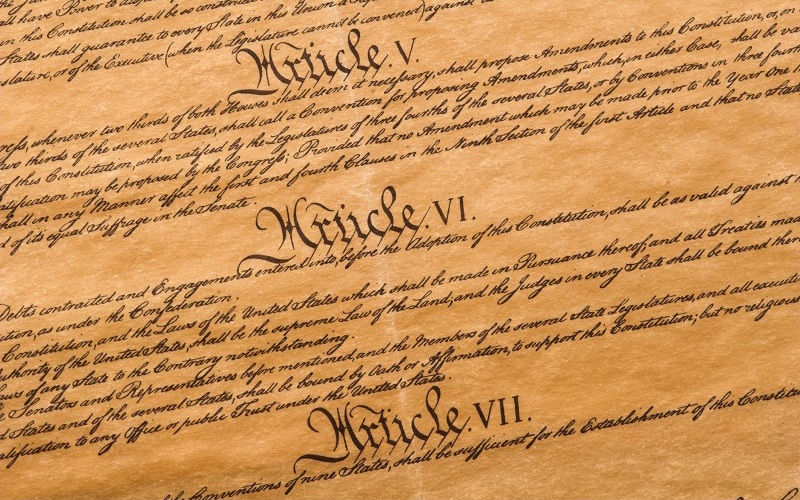 all have Power to dispo
in this Constitution shall be so construe
States shall guarantee to every State in this Union a Repu
islature, or of the Executive (when the Legislature cannot be convened) against
Article. V.
gress, whenever two thirds of both Houses shall deem it necessary, shall propose Amendments to this Constitution, or, on
two thirds of the several States, shall call a Convention for proposing Amendments, which, in either Case, shall be va
of this Constitution, when ratified by the Legislatures of three fourths of the several States, or by Conventions in three fourt
atification may be proposed by the Congress; Provided that no Amendment which may be made prior to the Year One t
shall in any Manner affect the first and fourth Clauses in the Ninth Section of the first Article and that no State
d of its equal Suffrage in the Senate.
Article. VI.
Debts contracted and Engagements entered into, before the Adoption of this Constitution, shall be as valid against
ution, as under the Confederation.
Constitution, and the Laws of the United States which shall be made in Pursuance thereof, and all Treaties mad
uthority of the United States, shall be the supreme Law of the Land, and the Judges in every State shall be bound ther
aws of any State to the Contrary notwithstanding.
e Senators and Representatives before mentioned, and the Members of the several State Legislatures, and all executi
d States and of the several States, shall be bound by Oath or Affirmation, to support this Constitution; but no religious
alification to any Office or public Trust under the United States.
Article. VII.
the Conventions of nine States, shall be sufficient for the Establishment of this Constitu